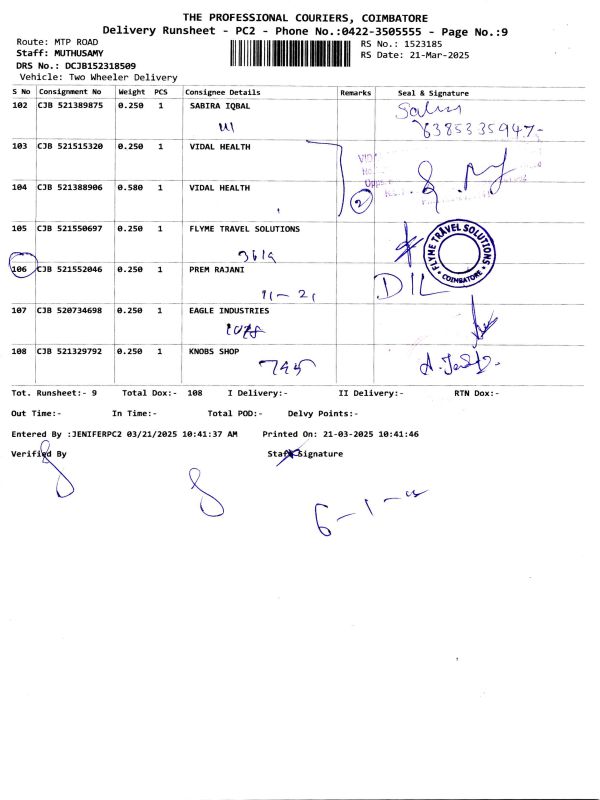 THE PROFESSIONAL COURIERS, COIMBATORE
Delivery Runsheet - PC2 - Phone No.:0422-3505555 - Page No.:9
Route: MTP ROAD
RS No.: 1523185
Staff: MUTHUSAMY
RS Date: 21-Mar-2025
DRS No.: DCJB152318509
Vehicle: Two Wheeler Delivery
S No Consignment No Weight PCS Consignee Details Remarks Seal & Signature
102 CJB 521389875 0.250 1 SABIRA IQBAL
6385335947-
103 CJB 521515320 0.250 1 VIDAL HEALTH
104 CJB 521388906 0.580 1 VIDAL HEALTH
2
105 CJB 521550697 0.250 1 FLYME TRAVEL SOLUTIONS
FLYME TRAVEL SOLUTIONS
COIMBATORE
106 CJB 521552046 0.250 1 PREM RAJANI
11-21
DIL
107 CJB 520734698 0.250 1 EAGLE INDUSTRIES
108 CJB 521329792 0.250 1 KNOBS SHOP
745
Tot. Runsheet:- 9 Total Dox:- 108 I Delivery:- II Delivery:- RTN Dox:-
Out Time:- In Time:- Total POD:- Delvy Points:-
Entered By :JENIFERPC2 03/21/2025 10:41:37 AM Printed On: 21-03-2025 10:41:46
Verified By Staff Signature